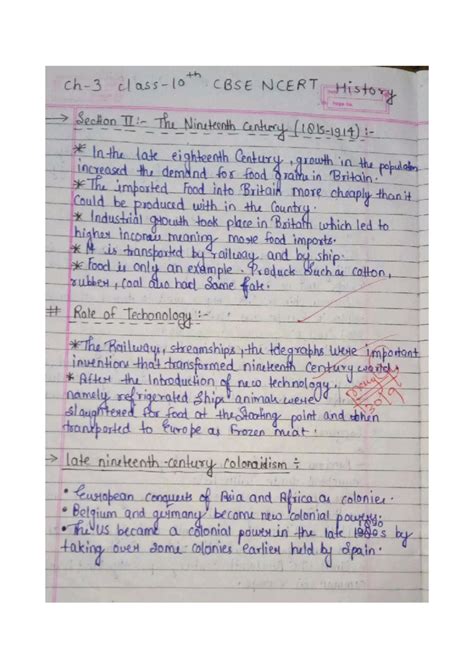 Ch-3 class-10th CBSE NCERT History
→ Section II :- The Nineteenth Century (1815-1914) :-
* In the late eighteenth Century, growth in the population
increased the demand for food grains in Britain.
* The imported food into Britain more cheaply than it
could be produced with in the Country.
* Industrial growth took place in Britain which led to
higher incomes meaning more food imports.
* It is transported by railway and by ship.
* Food is only an example. Produck Such as cotton,
rubber, coal also had Same fate.
# Role of Techonology :-
* The Railways, streamships, the telegraphs were important
inventions that transformed nineteenth Century
* After the Introduction of new technology,
namely refrigerated Ships animals were
slaughtered for food at the Starting point and then
transported to Europe as Frozen meat.
→ late nineteenth-century colonaidism ÷
• European conquests of Asia and Africa as colonies.
• Belgium and Germany become new colonial powers.
• The US became a colonial power in the late 1890s by
taking over some colonies earlier held by Spain.